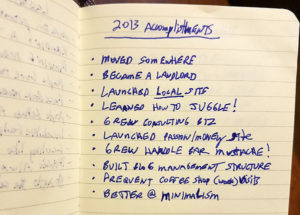 2013 Accomplishments
• MOVED SOMEWHERE
• BECAME A LANDLORD
• LAUNCHED LOCAL SITE
• LEARNED HOW TO JUGGLE!
• GREW CONSULTING BIZ
• LAUNCHED PASSION/MONEY SITE
• GREW HANDLE BAR MUSTACHE!
• BUILT BLOG MANAGEMENT STRUCTURE
• FREQUENT COFFEE SHOP VISITS
• BETTER @ MINIMALISM